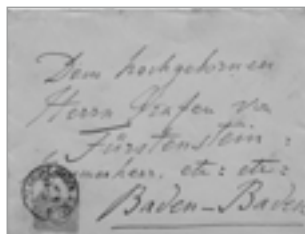 Dem hochgebornen
Herrn Grafen von
Fürstenstein :
etc : etc :
Baden-Baden